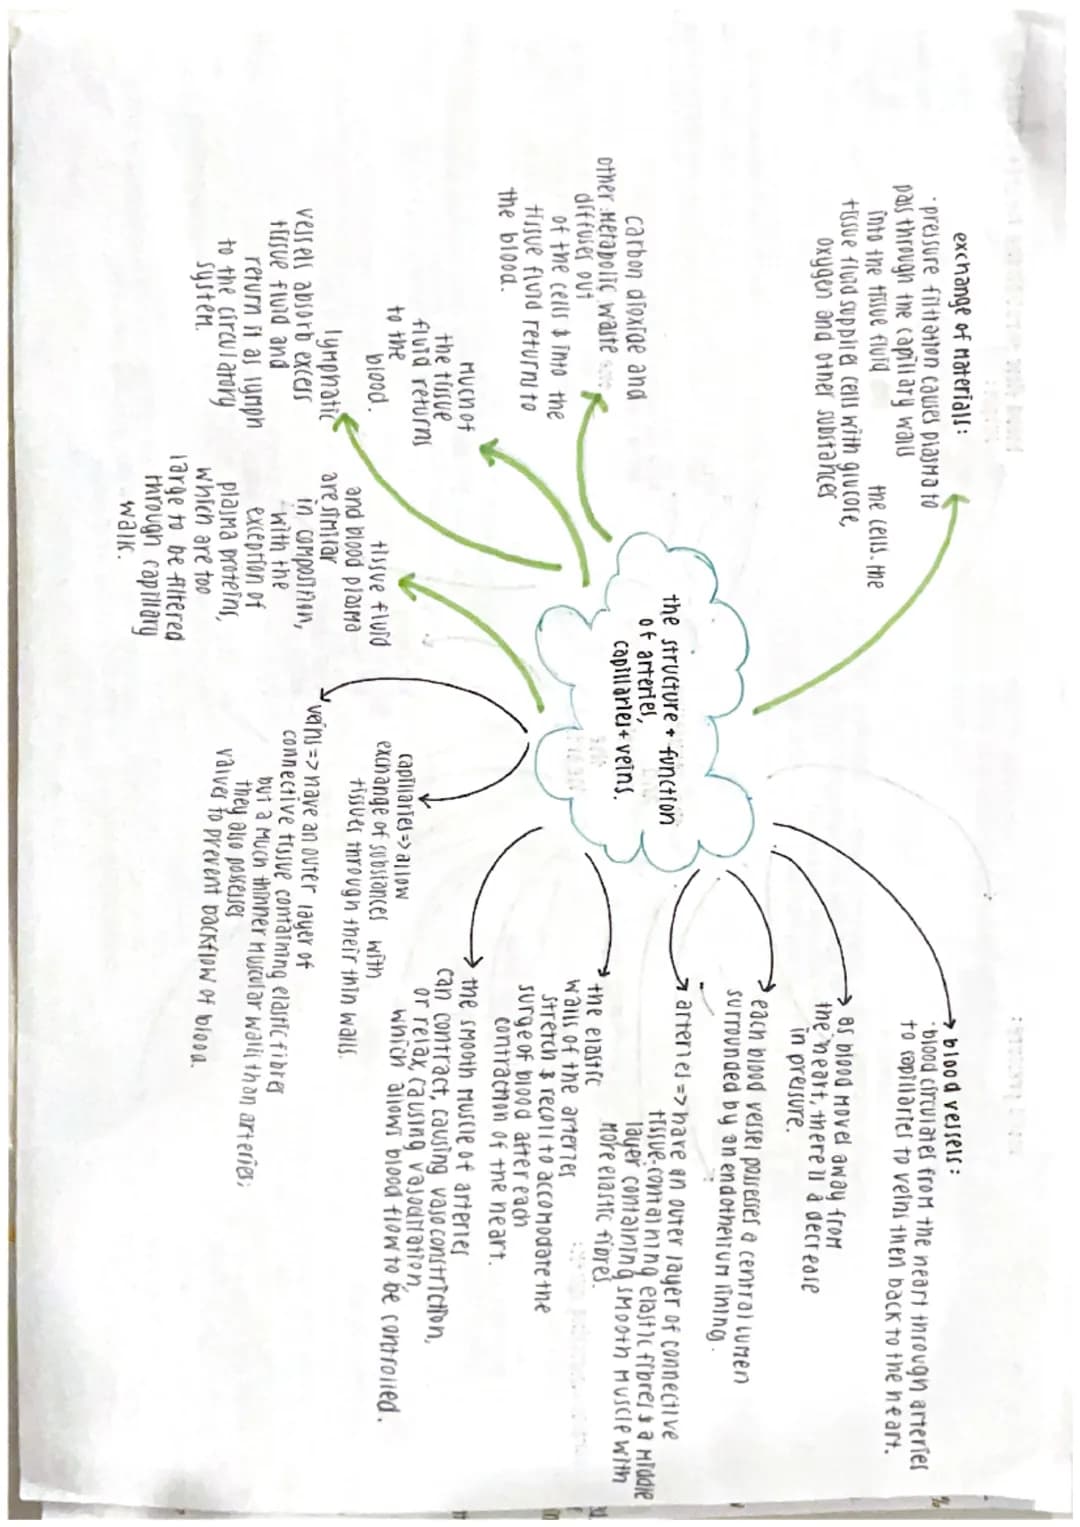 the structure + function
of arteries,
capillaries + veins.
exchange of materials:
· pressure filtration causes plasma to
pass through the capillary walls
into the tissue fluid the cells. the
tissue fluid supplies cells with glucose,
oxygen and other substances
carbon dioxide and
other metabolic waste
diffuses out
of the cells & into the
tissue fluid returns to
the blood.
much of
the tissue
fluid returns
to the
blood.
lymphatic
vessels absorb excess
tissue fluid and
return it as lymph
to the circulatory
system.
tissue fluid
and blood plasma
are similar
in composition,
with the
exception of
plasma proteins,
which are too
large to be filtered
through capillary
walls.
blood vessels:
·blood circulates from the heart through arteries
to capillaries to veins then back to the heart.
as blood moves away from
the heart, there is a decrease
in pressure.
each blood vessel possesses a central lumen
surrounded by an endothelium lining.
arteries => have an outer layer of connective
tissue containing elastic fibres & a middle
layer containing smooth muscle with
more elastic fibres.
the elastic
walls of the arteries
stretch & recoil to accomodate the
surge of blood after each
contraction of the heart.
the smooth muscle of arteries
can contract, causing vasoconstriction,
or relax, causing vasodilation,
which allows blood flow to be controlled.
capillaries => allow
exchange of substances with
tissues through their thin walls.
veins => have an outer layer of
connective tissue containing elastic fibres
but a much thinner muscular walls than arteries;
they also posesses
valves to prevent backflow of blood.